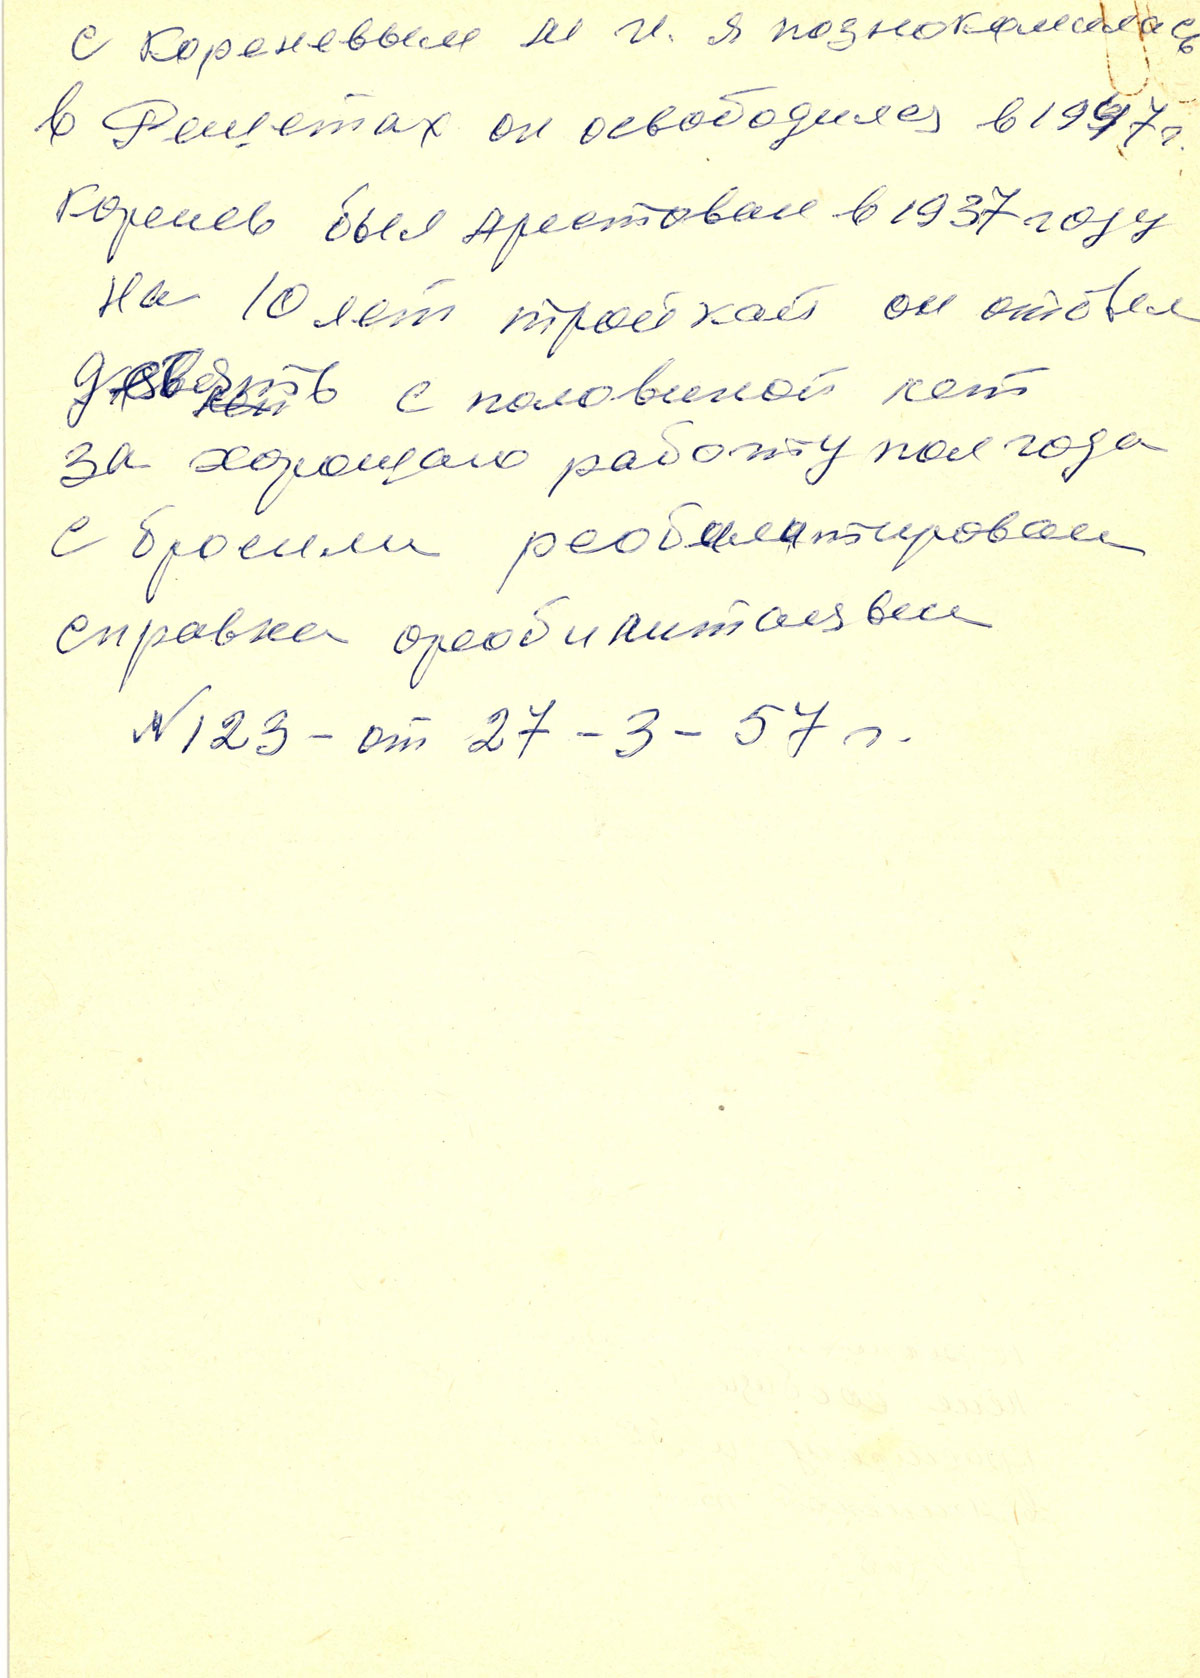 с Кореневым М И. я познокамилась
в Решетах он освободился в 1947 г.
Коренев был арестован в 1937 году
на 10 лет тройкай он отбыл
девять с половиной лет
за хорошаю работу пол года
с бросили реобилитирован
справка ореобилитаиявии
N 123 - от 27 - 3 - 57 г.